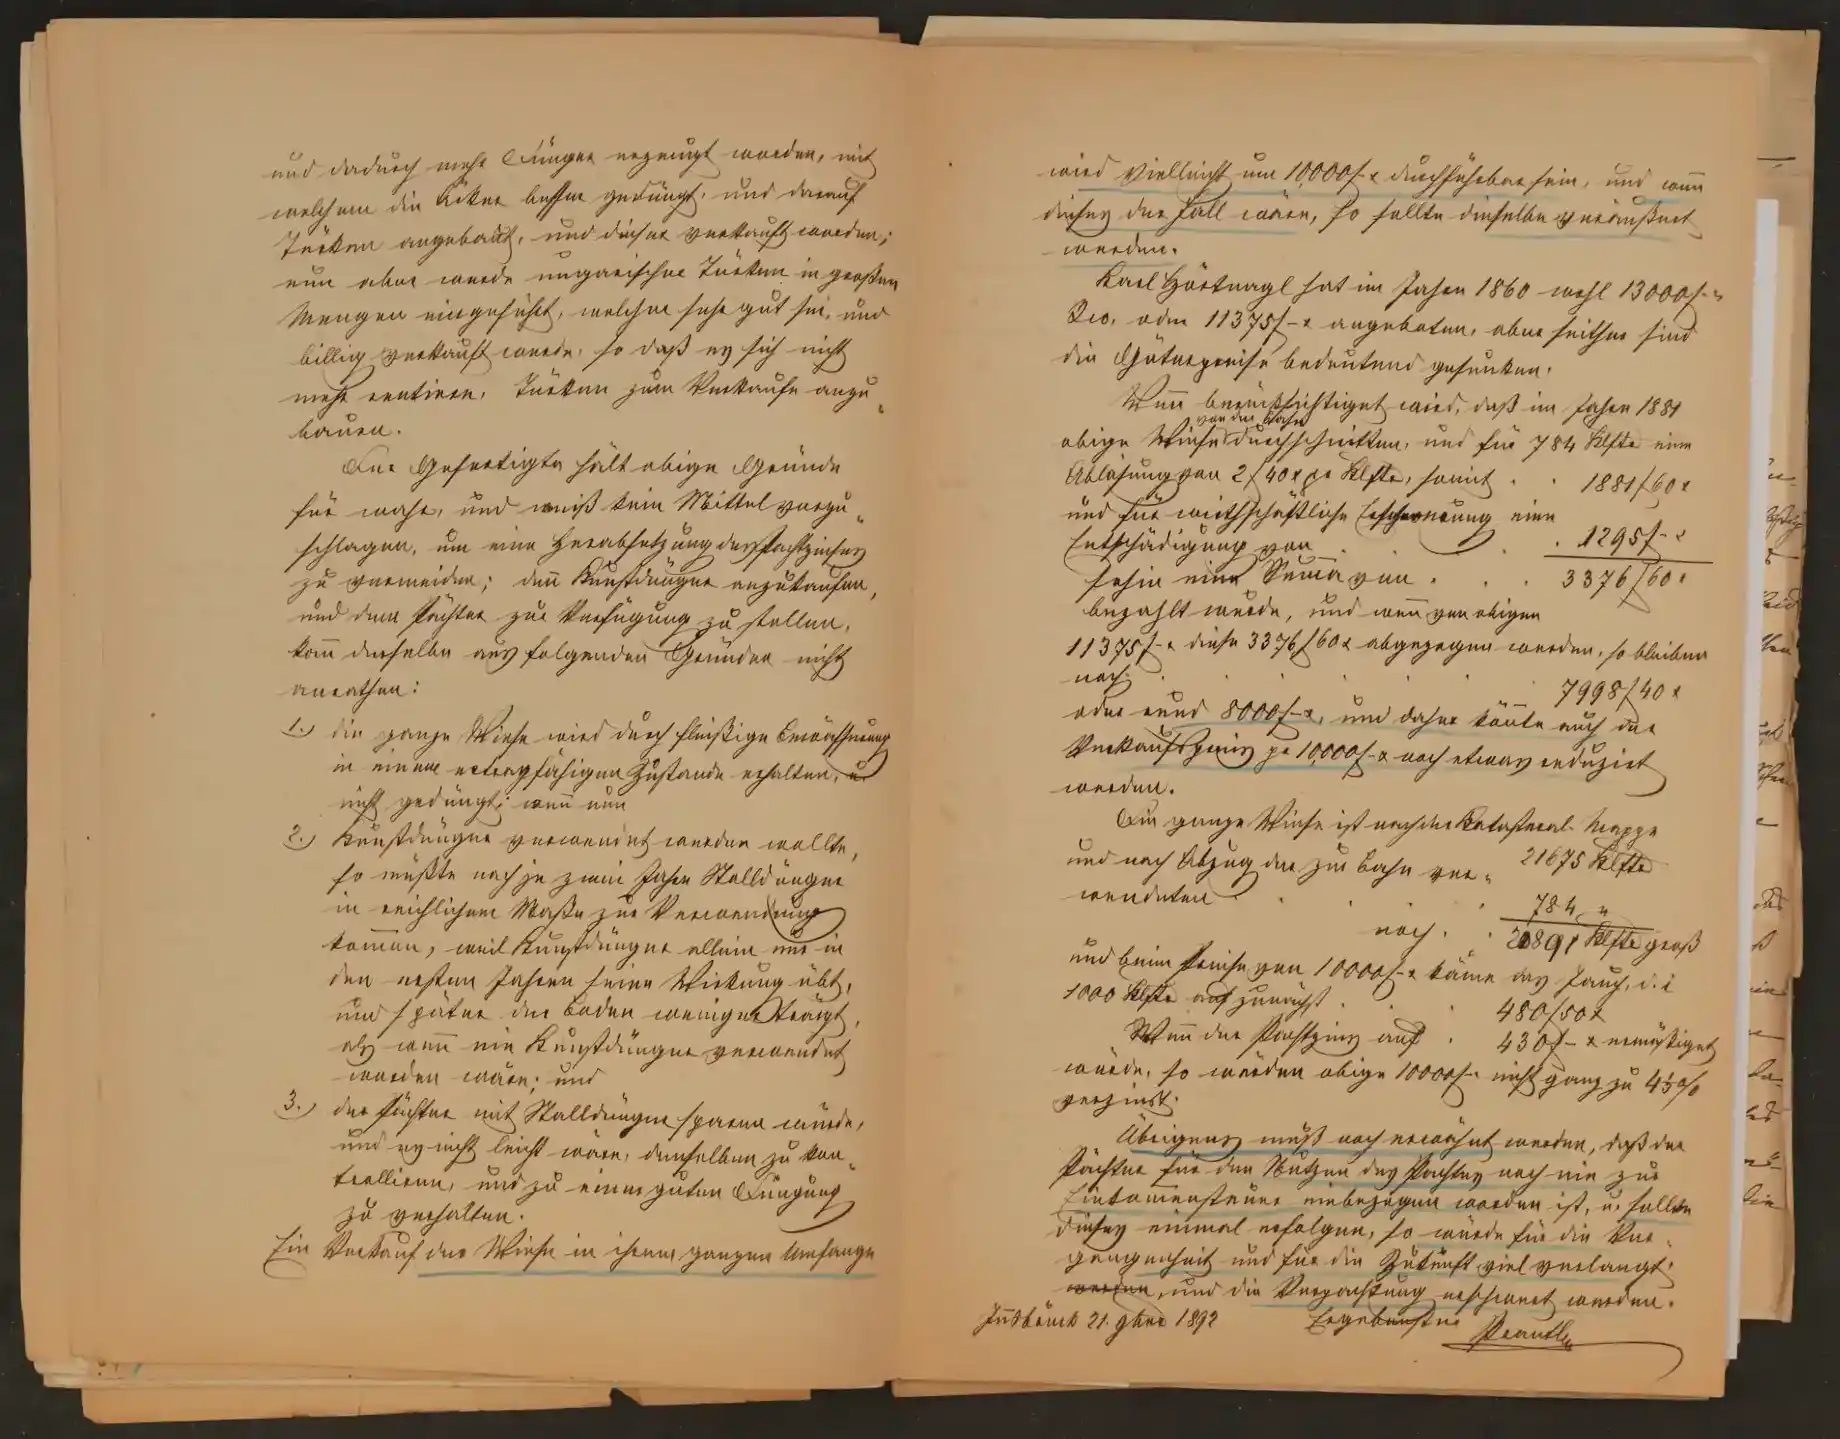 und dadurch mehr Dünger erzeugt worden, mit
welchem die Äcker besser gedüngt, und darauf
Türken angebaut, und dieser verkauft worden;
nun aber werde ungarischer Türken in großen
Mengen eingeführt, welcher sehr gut sei, und
billig verkauft werde, so daß es sich nicht
mehr rentiere, Türken zum Verkaufe anzu„
bauen.
Der Gefertigte hält obige Gründe
für wahr, und weiß kein Mittel vorzu„
schlagen, um eine Herabsetzung des Pachtzinses
zu vermeiden; den Kunstdünger anzukaufen,
und dem Pächter zur Verfügung zu stellen,
kann derselbe aus folgenden Gründen nicht
anrathen:
1.) die ganze Wiese wird durch fleißige Bewässerung
in einem ertragsfähigen Zustande erhalten, u.
nicht gedüngt; wenn nun
2.) Kunstdünger verwendet werden wollte,
so müßte nach je zwei Jahren Stalldünger
in reichlichem Maße zur Verwendung
kommen, weil Kunstdünger allein nur in
den ersten Jahren seine Wirkung übt,
und später der Boden weniger trägt,
als wenn nie Kunstdünger verwendet
worden wäre; und
3.) der Pächter mit Stalldünger sparen würde,
und es nicht leicht wäre, denselben zu kon„
trollieren, und zu einer guten Düngung
zu verhalten.
Ein Verkauf der Wiese in ihrem ganzen Umfange
wird vielleicht um 10,000 f - x durchführbar sein, und wenn
dieses der Fall wäre, so sollte dieselbe veräußert
werden.
Karl Hörtnagl hat im Jahre 1860 wohl 13000 f - x
Rw. oder 11375 f - x angeboten, aber seither sind
die Güterpreise bedeutend gesunken.
Wenn berücksichtiget wird, daß im Jahre 1881
von der Bahn
obige Wiese durchschnitten, und für 784 Klfter eine
Ablösung von 2 f 40 x pr Klfter, somit . . 1881 f 60 x
und für wirthschaftliche Erschwerung eine
Entschädigung von . . . 1295 f - x
sohin eine Summa von . . . 3376 f 60 x
bezahlt wurde, und wenn von obigen
11375 f - x diese 3376 f 60 x abgezogen werden, so bleiben
noch . . . . 7998 f 40 x
oder rund 8000 f - x, und daher könnte auch der
Verkaufspreis pr 10,000 f - x noch etwas reduziert
werden.
Die ganze Wiese ist nach der Katastral-Mappe
21675 Klfter
und nach Abzug der zur Bahn ver„
wendeten . . . 784 „
noch . . 20891 Klfter groß
und beim Preise von 10000 f - x käme das Jauch, d. i.
1000 Klfter auf zunächst . . 480 f 50 x
Wenn der Pachtzins auf . 430 f - x ermäßiget
würde, so würden obige 10000 f - nicht ganz zu 4½ %
verzinst.
Übrigens muß noch erwähnt werden, daß der
Pächter für den Nutzen des Pachtes noch nie zur
Einkommensteuer einbezogen worden ist, u. sollte
dieses einmal erfolgen, so würde für die Ver„
gangenheit und für die Zukunft viel verlangt,
werden, und die Verpachtung erschwert werden.
Innsbruck 21. 9ber 1892 Ergebenster
Prantl